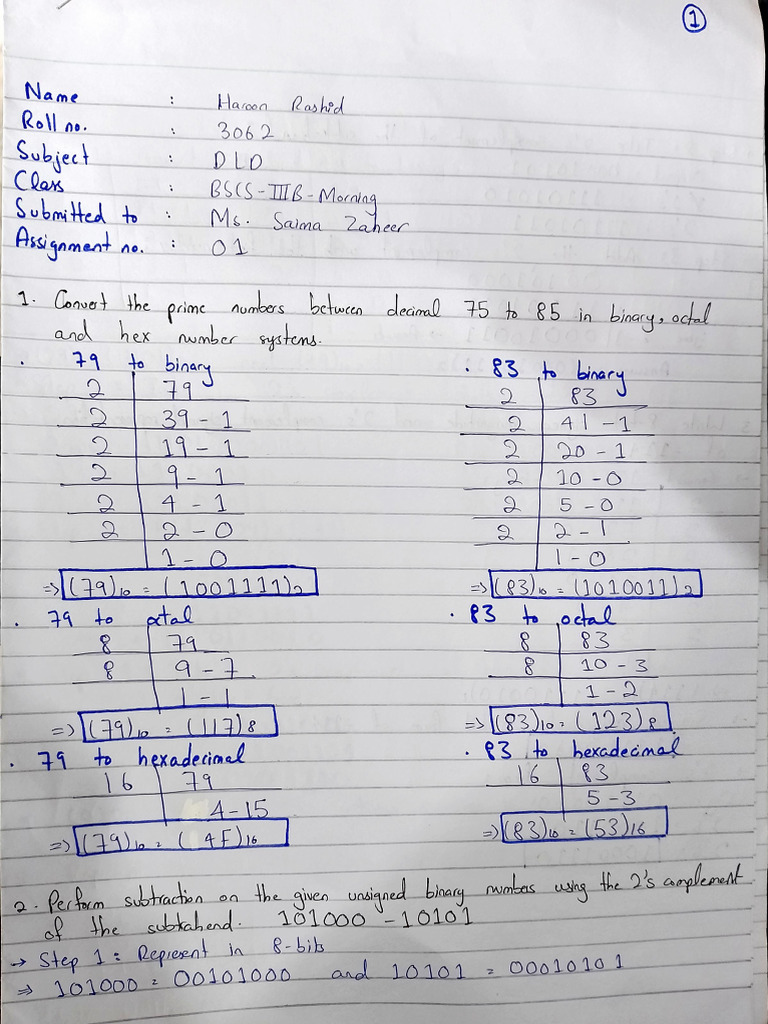 1
Name : Haroon Rashid
Roll no. : 3062
Subject : DLD
Class : BSCS-IIIB-Morning
Submitted to : Ms. Saima Zaheer
Assignment no. : 01
1. Convert the prime numbers between decimal 75 to 85 in binary, octal
and hex number systems.
. 79 to binary
2 79
2 39 - 1
2 19 - 1
2 9 - 1
2 4 - 1
2 2 - 0
1 - 0
=> (79)10 = (1001111)2
. 83 to binary
2 83
2 41 - 1
2 20 - 1
2 10 - 0
2 5 - 0
2 2 - 1
1 - 0
=> (83)10 = (1010011)2
. 79 to octal
8 79
8 9 - 7
1 - 1
=> (79)10 = (117)8
. 83 to octal
8 83
8 10 - 3
1 - 2
=> (83)10 = (123)8
. 79 to hexadecimal
16 79
4 - 15
=> (79)10 = (4F)16
. 83 to hexadecimal
16 83
5 - 3
=> (83)10 = (53)16
2. Perform subtraction on the given unsigned binary numbers using the 2's complement
of the subtrahend. 101000 - 10101
→ Step 1: Represent in 8-bits
=> 101000 = 00101000 and 10101 = 00010101